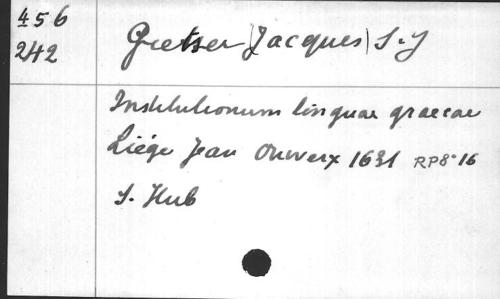 456
242
Gretser (Jacques) S.J
Institutionum linguae graecae
Liége Jean Ouwerx 1631 RP8°16
S. Hub